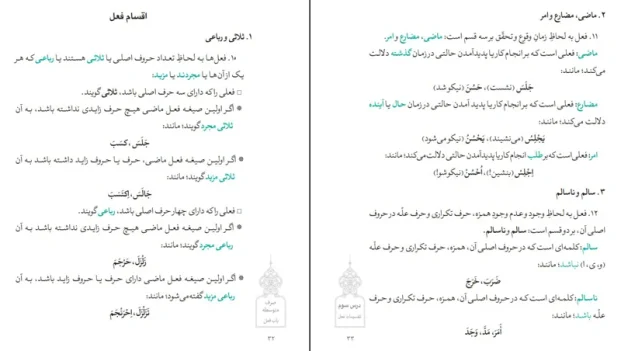 اقسام فعل
۱. ثلاثی و رباعی
۱۰. فعل‌ها به لحاظ تعداد حروف اصلی یا ثلاثی هستند یا رباعی که هر
یک از آن‌ها یا مجردند یا مزید:
□ فعلی را که دارای سه حرف اصلی باشد، ثلاثی گویند.
● اگر اولین صیغه فعل ماضی هیچ حرف زایدی نداشته باشد، به آن
ثلاثی مجرد گویند؛ مانند:
جَلَسَ، کَسَبَ
● اگر اولین صیغه فعل ماضی، حرف یا حروف زاید داشته باشد به آن
ثلاثی مزید گویند؛ مانند:
جالَسَ، اِکتَسَبَ
□ فعلی را که دارای چهار حرف اصلی باشد، رباعی گویند.
● اگر اولین صیغه فعل ماضی هیچ حرف زایدی نداشته باشد، به آن
رباعی مجرد گویند؛ مانند:
زَلزَلَ، حَرجَمَ
● اگر اولین صیغه فعل ماضی دارای حرف یا حروف زاید باشد، به آن
رباعی مزید گفته می‌شود؛ مانند:
تَزَلزَلَ، اِحرَنجَمَ
صرف
متوسطه
باب فعل
۳۲
۲. ماضی، مضارع و امر
۱۱. فعل به لحاظ زمانِ وقوع و تحقّق بر سه قسم است: ماضی، مضارع و امر.
ماضی: فعلی است که بر انجام کار یا پدید آمدن حالتی در زمان گذشته دلالت
می‌کند؛ مانند:
جَلَسَ (نشست)، حَسُنَ (نیکو شد)
مضارع: فعلی است که بر انجام کار یا پدید آمدن حالتی در زمان حال یا آینده
دلالت می‌کند؛ مانند:
یَجلِسُ (می‌نشیند)، یَحسُنُ (نیکو می‌شود)
امر: فعلی است که بر طلب انجام کار یا پدید آمدن حالتی دلالت می‌کند؛ مانند:
اِجلِس (بنشین!)، اُحسُن (نیکو شو!)
۳. سالم و ناسالم
۱۲. فعل به لحاظ وجود و عدم وجود همزه، حرف تکراری و حرف علّه در حروف
اصلی آن، بر دو قسم است: سالم و ناسالم.
سالم: کلمه‌ای است که در حروف اصلی آن، همزه، حرف تکراری و حرف علّه
(و، ی، ا) نباشد؛ مانند:
ضَرَبَ، خَرَجَ
ناسالم: کلمه‌ای است که در حروف اصلی آن، همزه، حرف تکراری و حرف
علّه باشد؛ مانند:
أَمَرَ، مَدَّ، وَجَدَ
درس سوم
تقسیمات فعل
۳۳